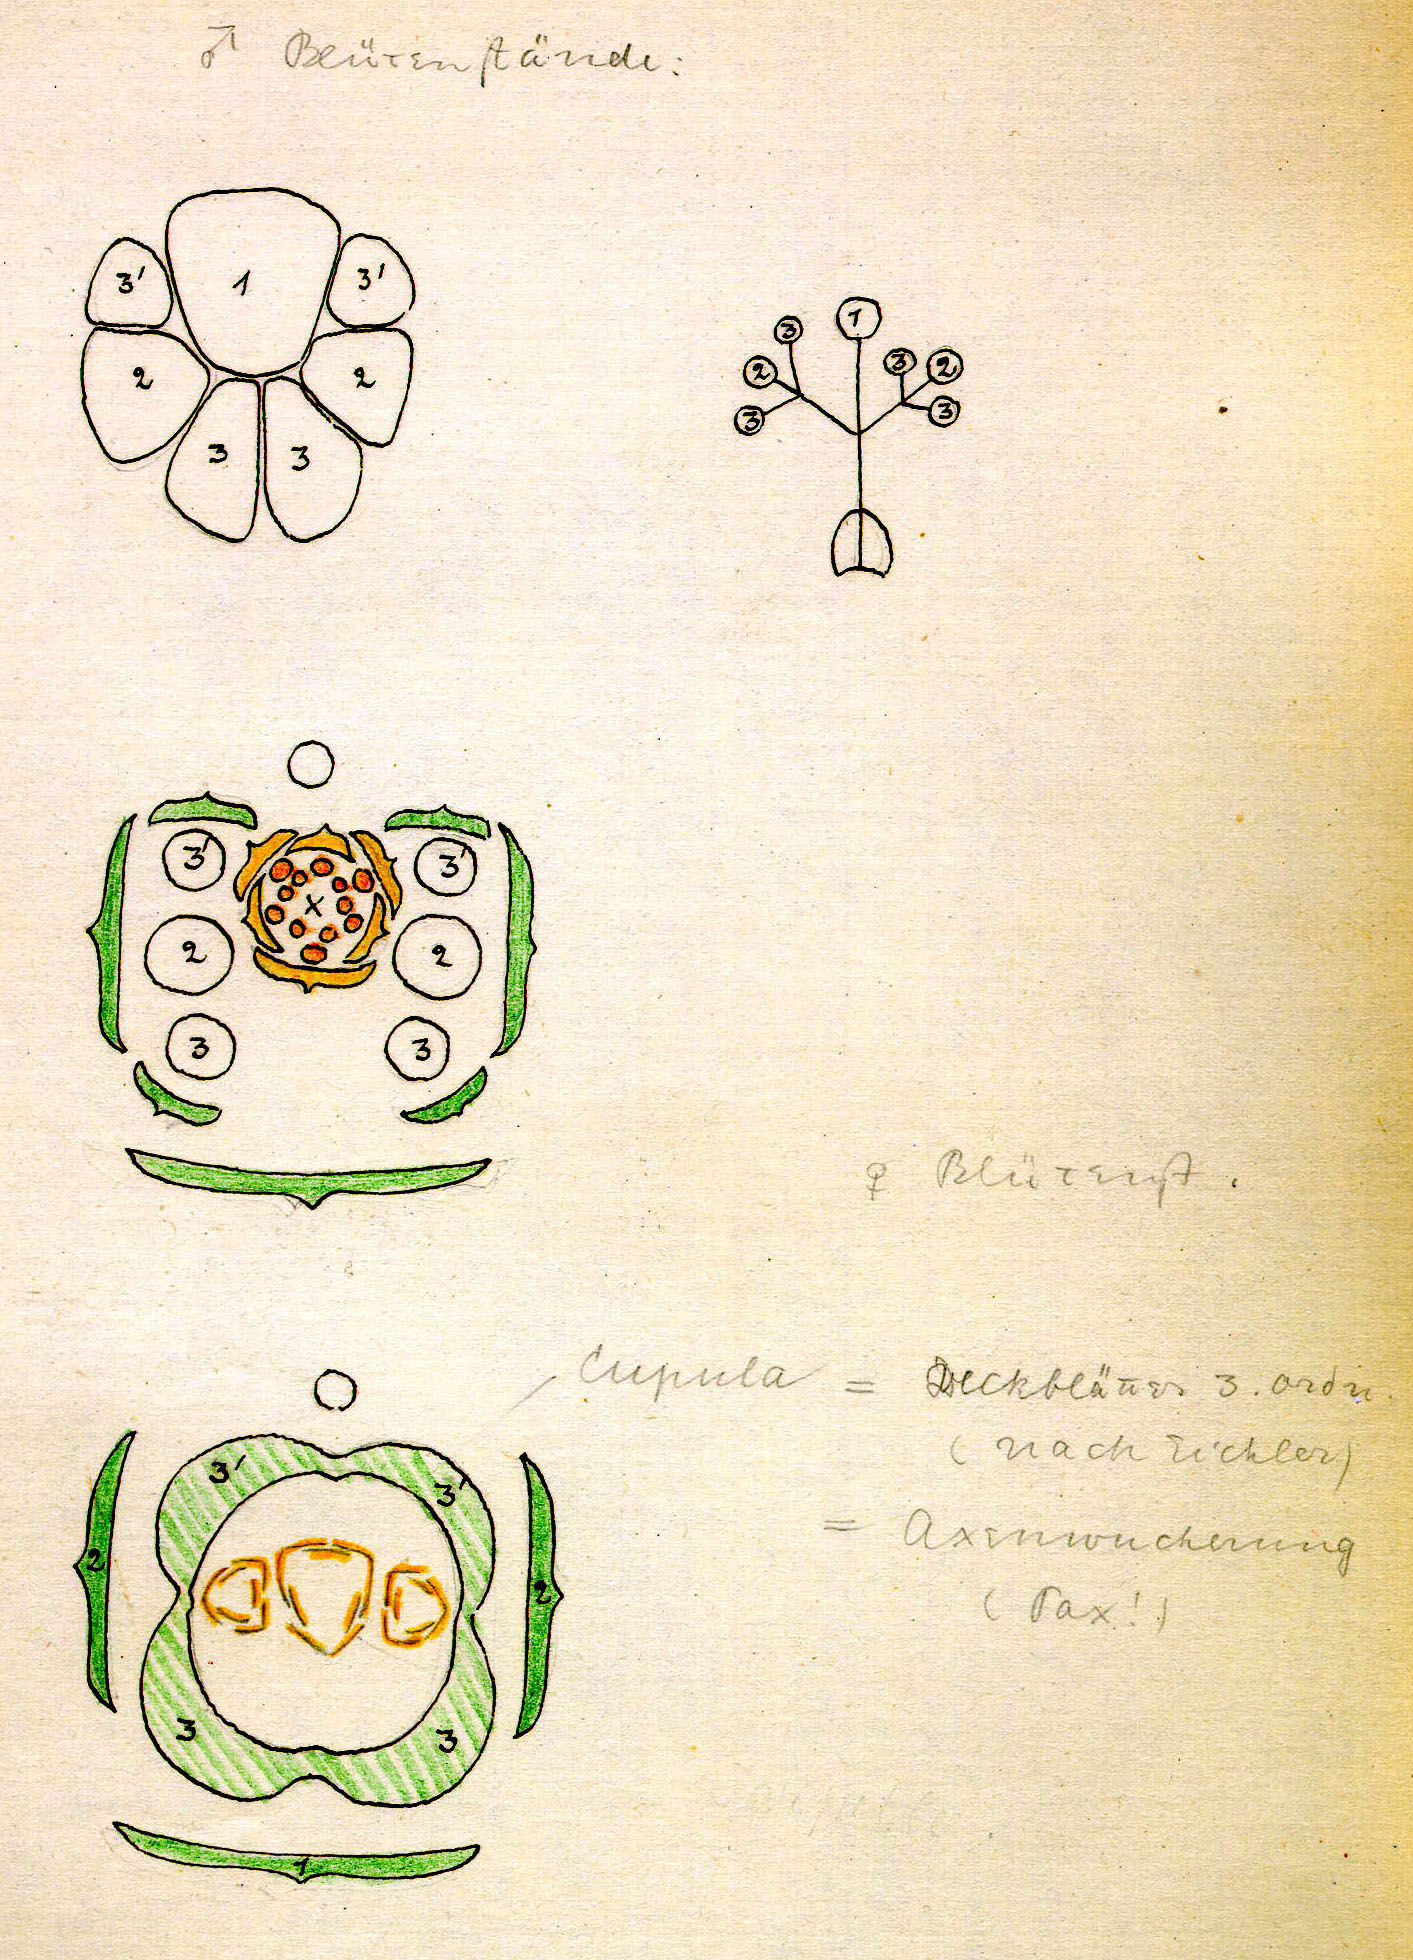 ♂ Blütenstände:
3' 1 3'
2 2
3 3
1
3 3 2
2
3 3
3' 3'
x
2 2
3 3
♀ Blütenst.
Cupula = Deckblätter 3. Ordn.
(nach Eichler)
3' 3'
= Axenwucherung
2 2
(Pax!)
3 3
1